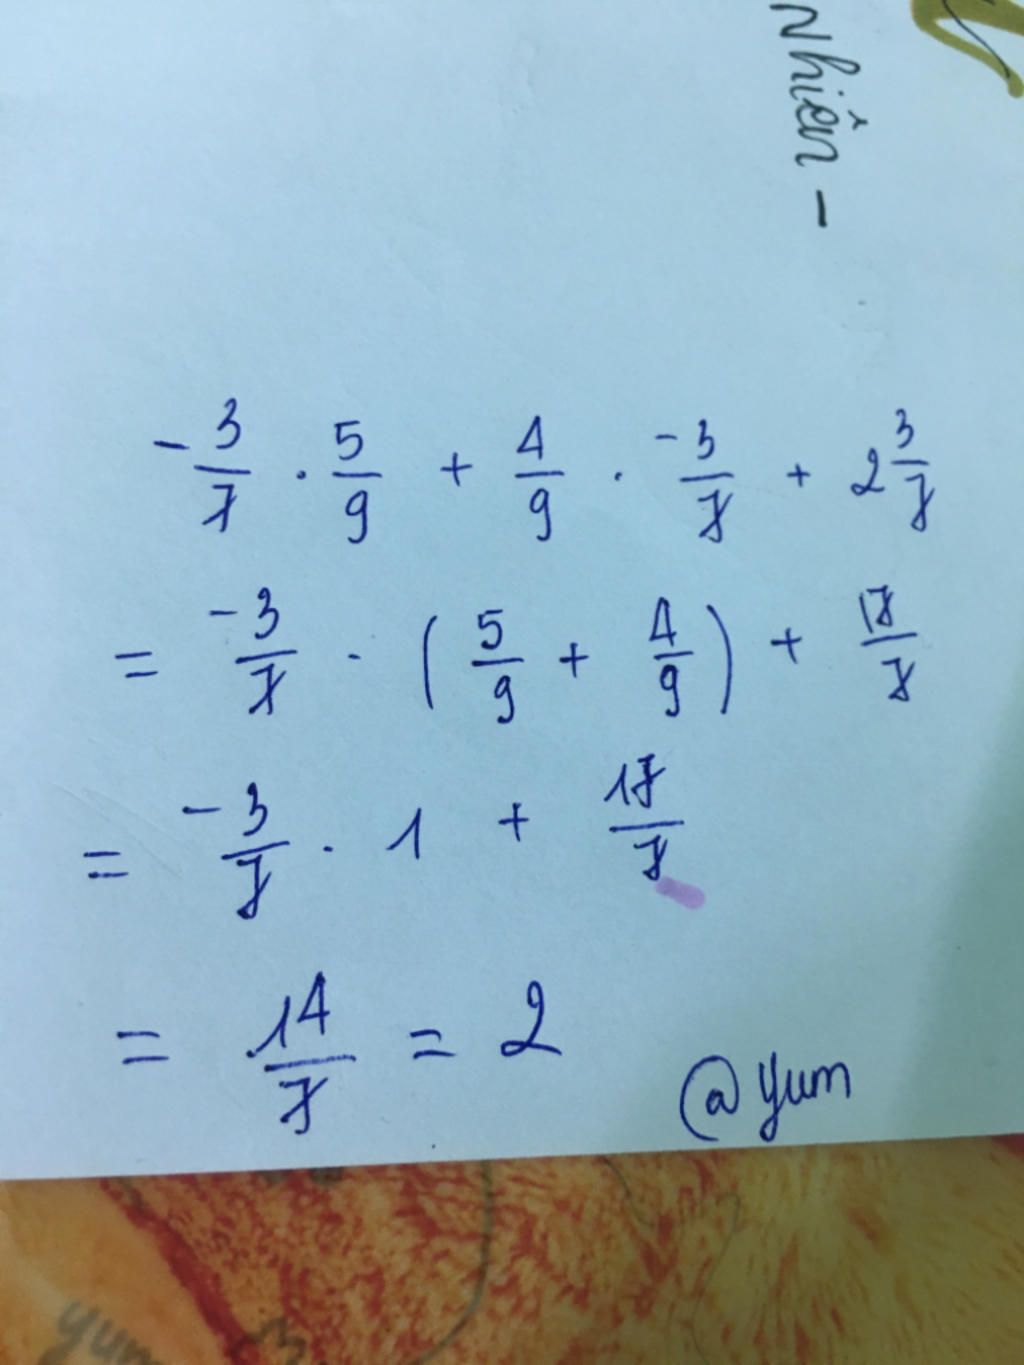 Nhiên -
-3/7 . 5/9 + 4/9 . -3/7 + 2 3/7
= -3/7 . (5/9 + 4/9) + 17/7
= -3/7 . 1 + 17/7
= 14/7 = 2
@yum
yum